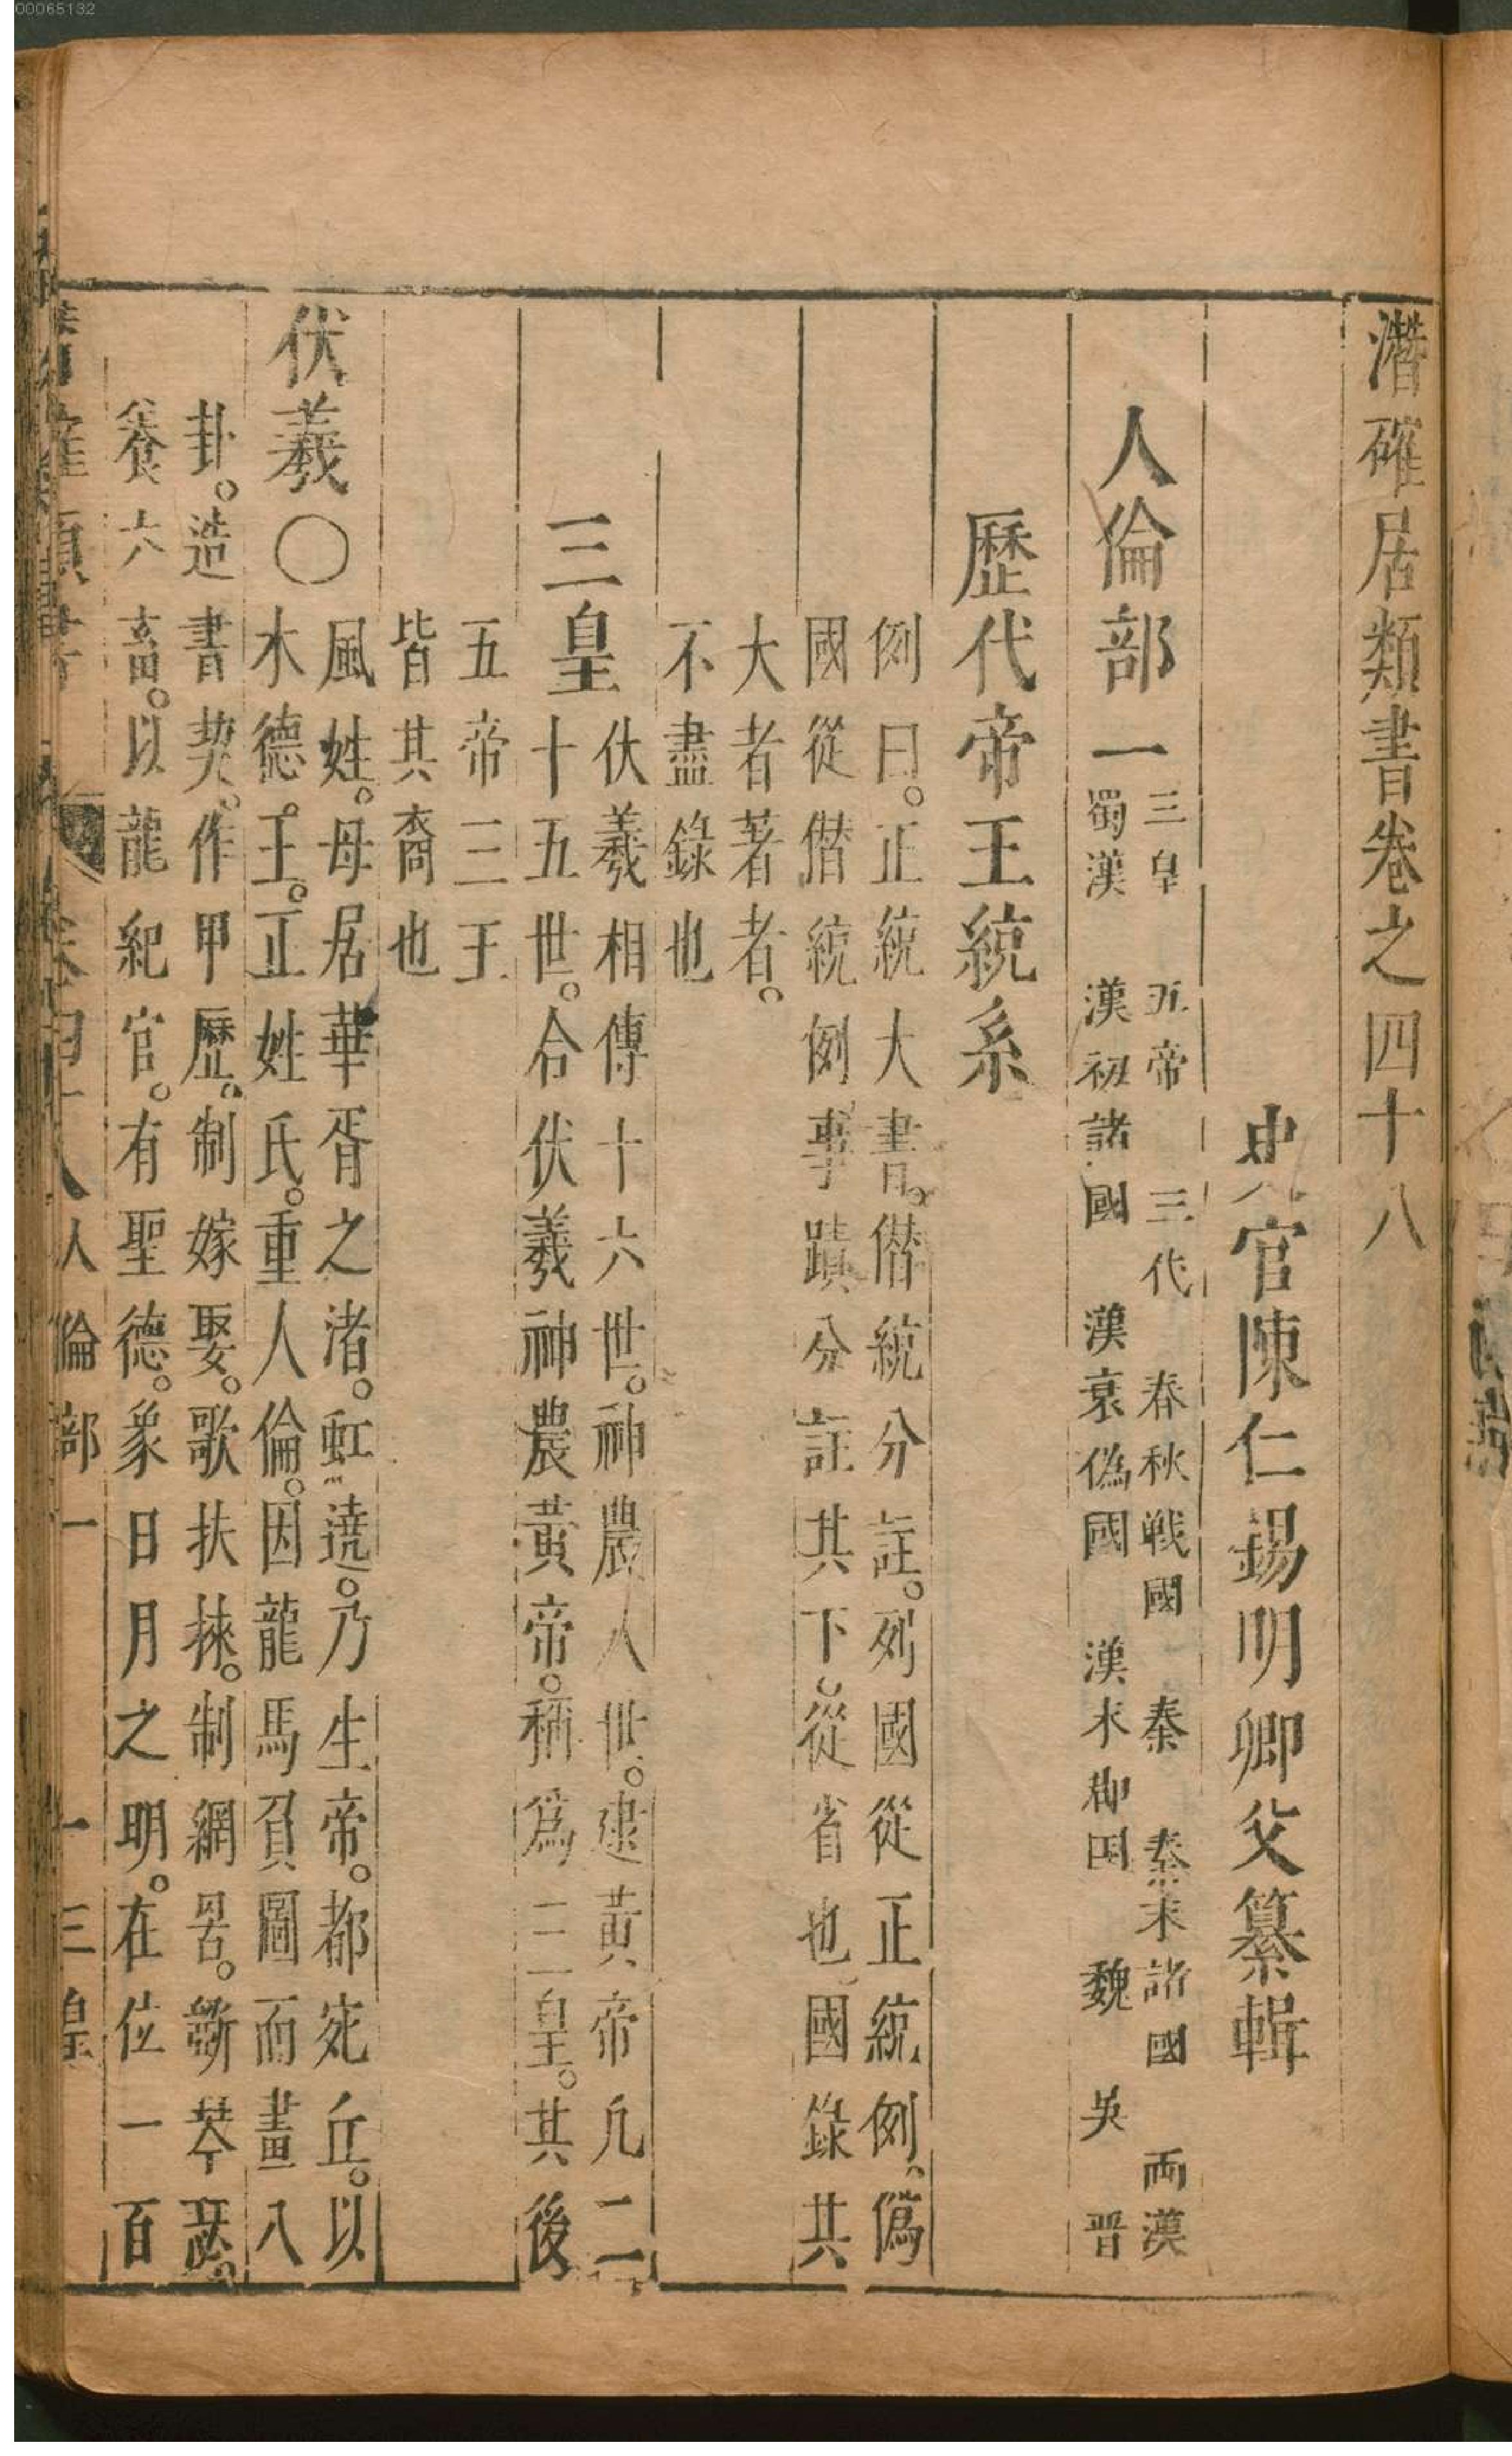 00065132
潛確居類書卷之四十八
史官陳仁錫明卿父纂輯
人倫部一
三皇 五帝 三代 春秋戰國 秦 秦末諸國 兩漢
蜀漢 漢初諸國 漢衰偽國 漢末御国 魏 吳 晋
歷代帝王統系
例曰。正統大書。僣統分註。列國從正統例、偽
國從僣統例事蹟分註其下。從省也國錄其
大者著者。
不盡錄也
三皇
伏羲相傳十六世。神農八世。逮黃帝凡二
十五世。合伏羲神農黃帝。稱爲三皇。其後
五帝三王
皆其裔也
伏羲〇
風姓。母居華胥之渚。虹遶。乃生帝。都宛丘。以
木德。王。正姓氏。重人倫。因龍馬負圖而畫八
卦。造書契。作甲歷。制嫁娶。歌扶徠。制網罟。斵琴瑟。
養六畜。以龍紀官。有聖德。象日月之明。在位一百
人倫部一 一 三皇